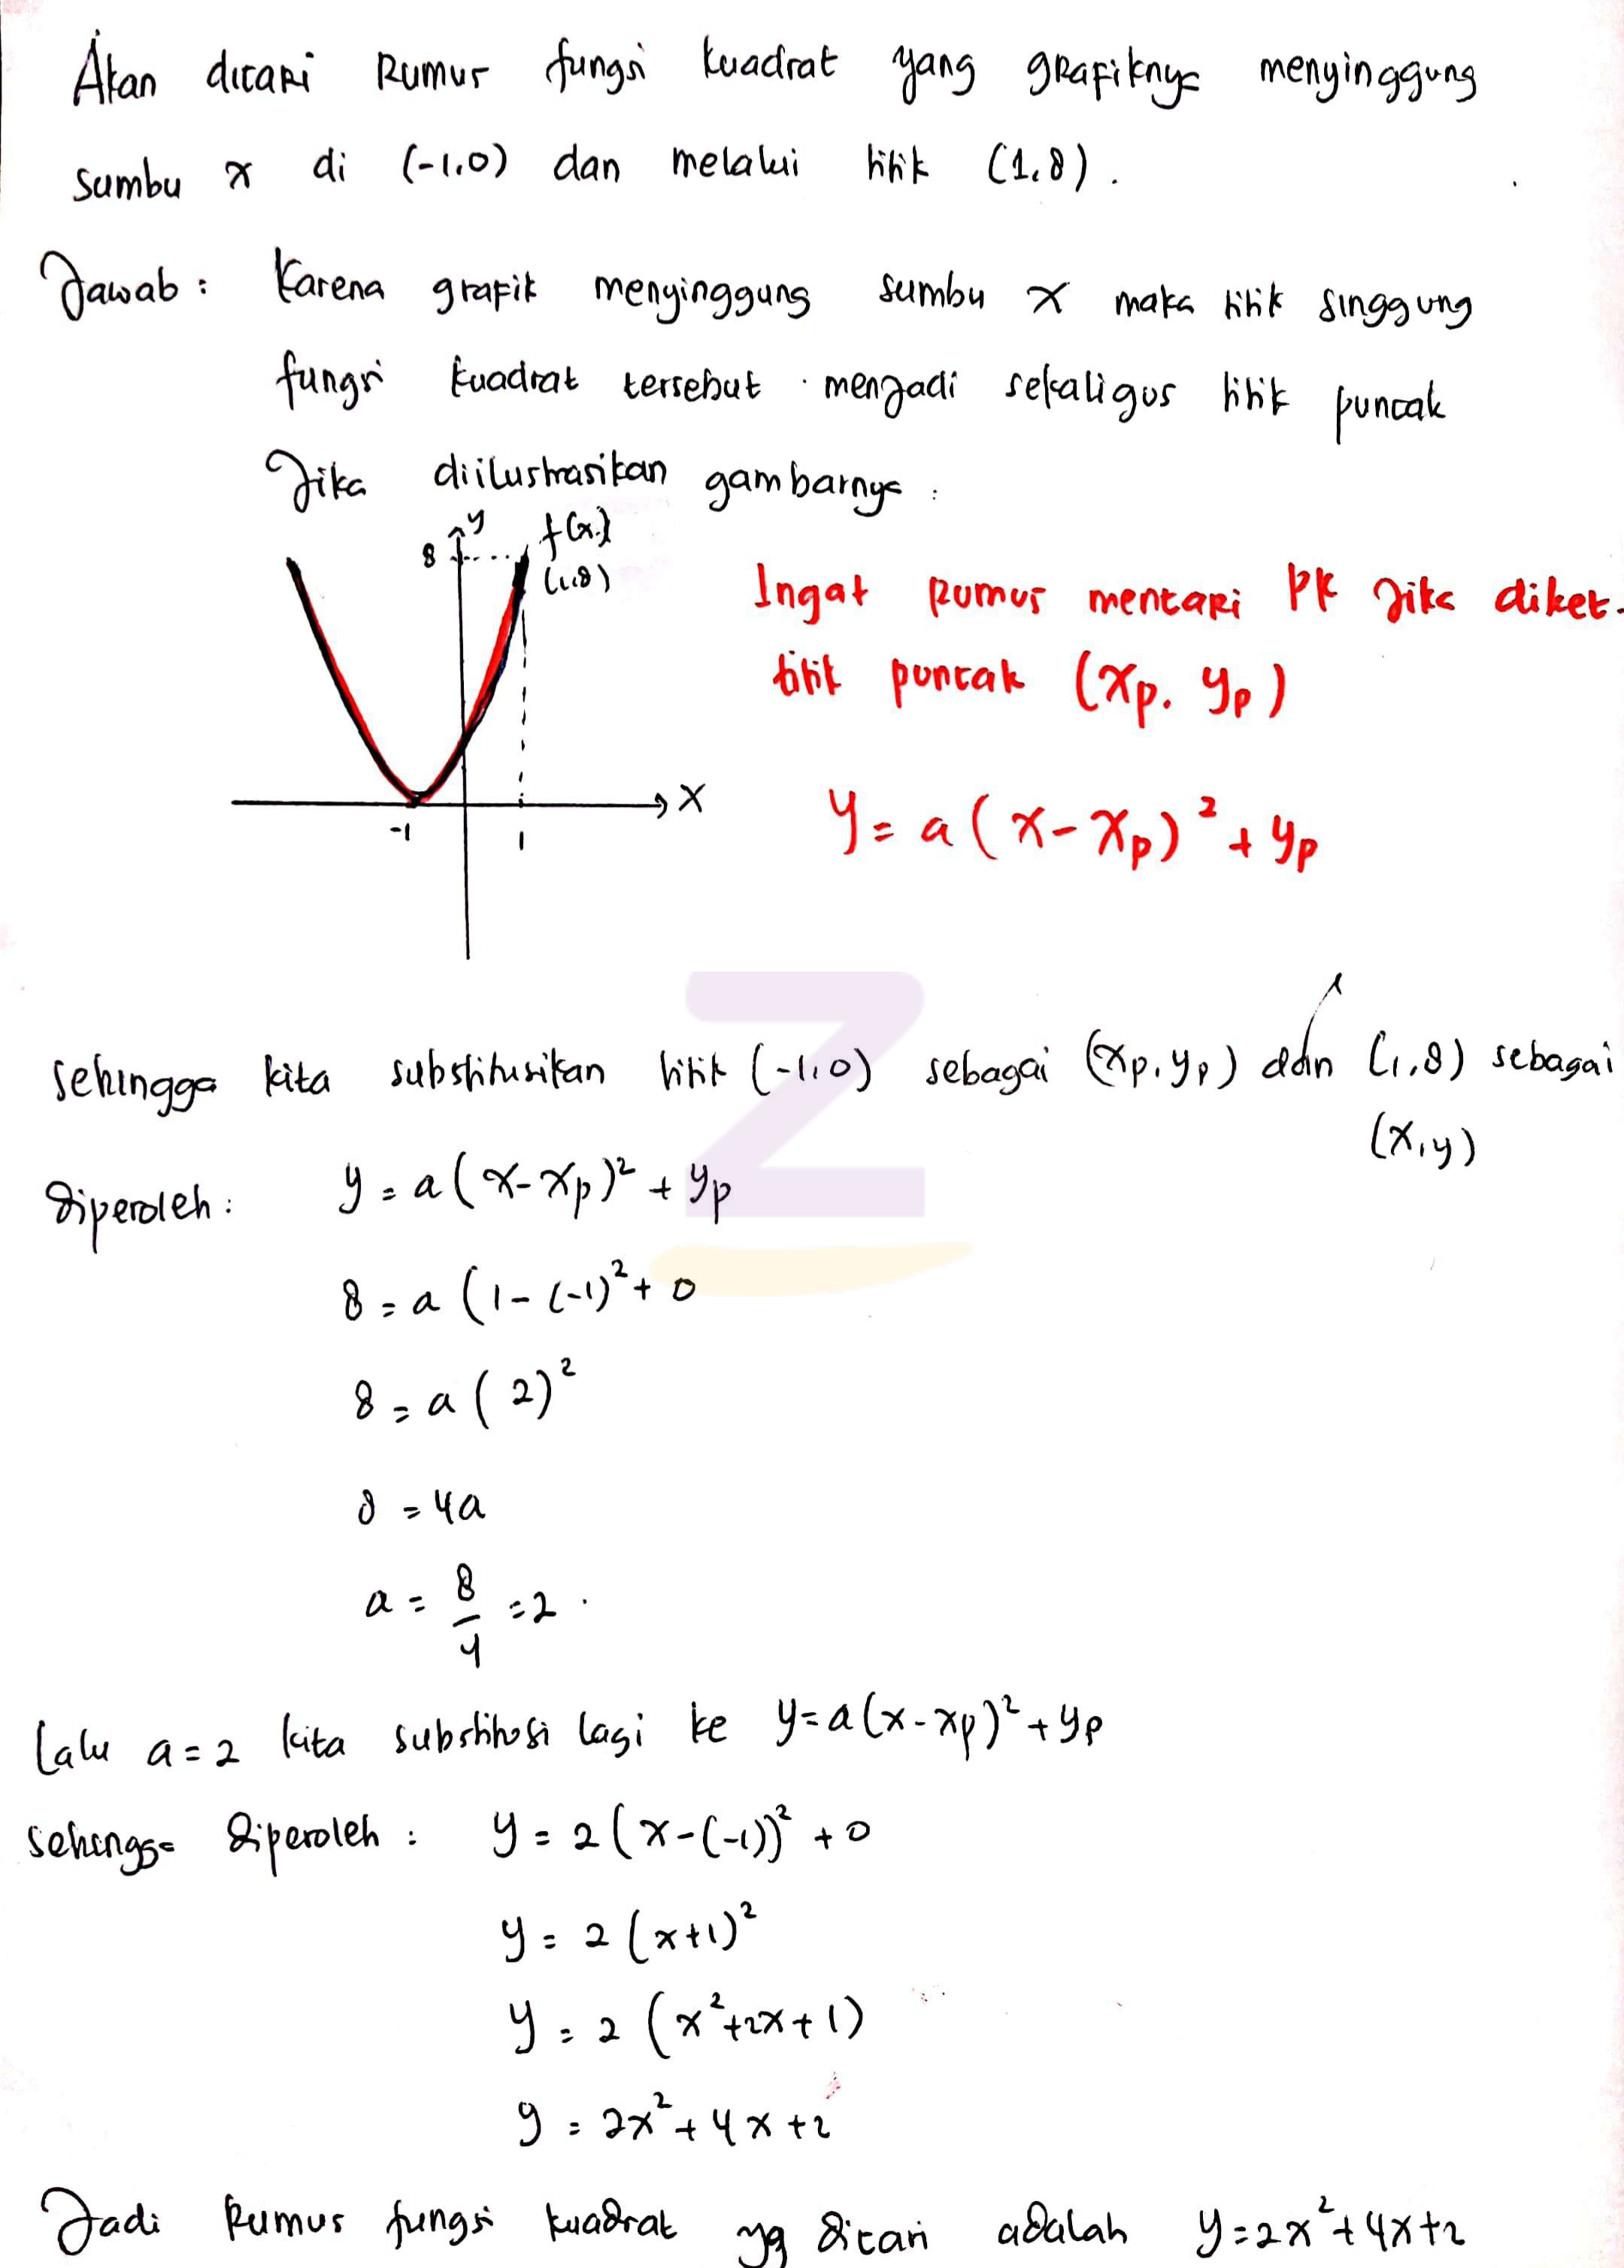 Akan dicari Rumus fungsi kuadrat yang grafiknya menyinggung
sumbu x di (-1,0) dan melalui titik (1,8).
Jawab : Karena grafik menyinggung sumbu x maka titik singgung
fungsi kuadrat tersebut menjadi sekaligus titik puncak
Jika diilustrasikan gambarnya :
y f(x)
8 (1,8)
Ingat rumus mencari PK jika diket.
titik puncak (xp, yp)
x
-1 1
y = a(x-xp)² + yp
Z
sehingga kita substitusikan titik (-1,0) sebagai (xp,yp) dan (1,8) sebagai
(x,y)
diperoleh : y = a(x-xp)² + yp
8 = a(1-(-1)² + 0
8 = a(2)²
8 = 4a
a = 8/4 = 2 .
Lalu a=2 kita substitusi lagi ke y=a(x-xp)²+yp
sehingga diperoleh : y = 2(x-(-1))² + 0
y = 2(x+1)²
y = 2(x²+2x+1)
y = 2x²+4x+2
Jadi Rumus fungsi kuadrat yg dicari adalah y=2x²+4x+2